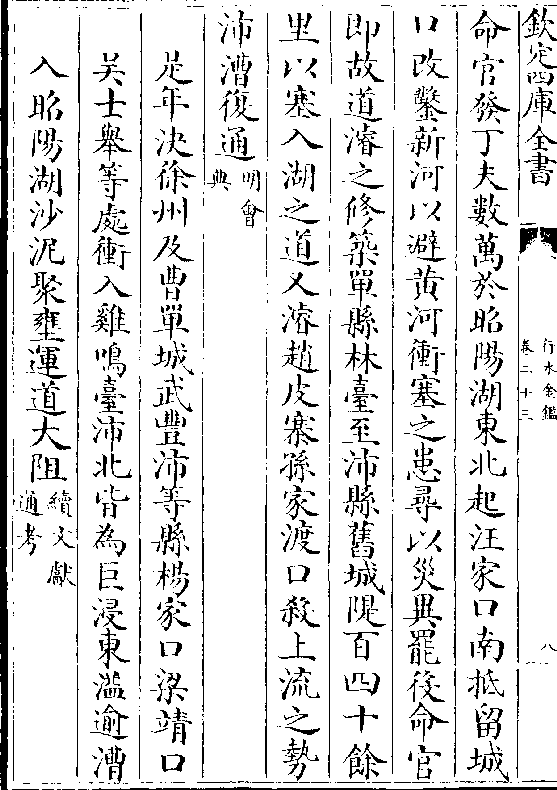 欽定四庫全書
行水金鑑
卷二十三
八
命官發丁夫數萬於昭陽湖東北起汪家口南抵留城
口改鑿新河以避黄河衝塞之患尋以災異罷後命官
即故道濬之修築單縣林臺至沛縣舊城隄百四十餘
里以塞入湖之道又濬趙皮寨孫家渡口殺上流之勢
沛漕復通明會
典
是年決徐州及曹單城武豐沛等縣楊家口梁靖口
吴士舉等處衝入雞鳴臺沛北皆為巨浸東溢逾漕
入昭陽湖沙泥聚壅運道大阻續文獻
通考